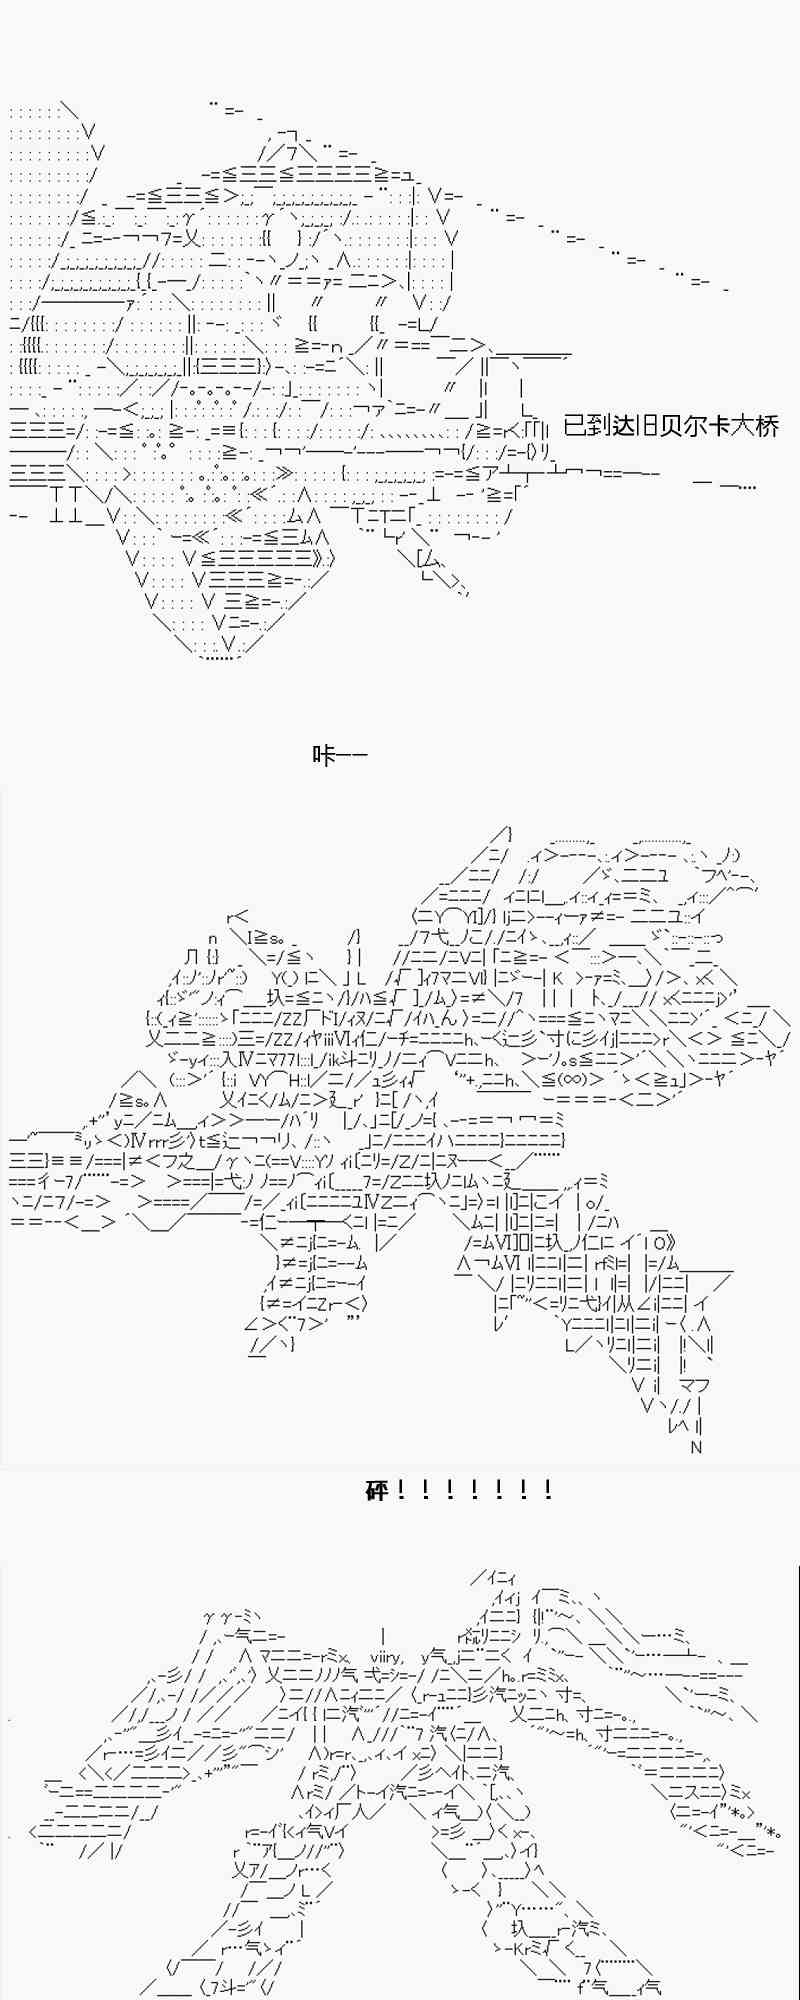 已到达旧贝尔卡大桥
咔——
砰！！！！！！！